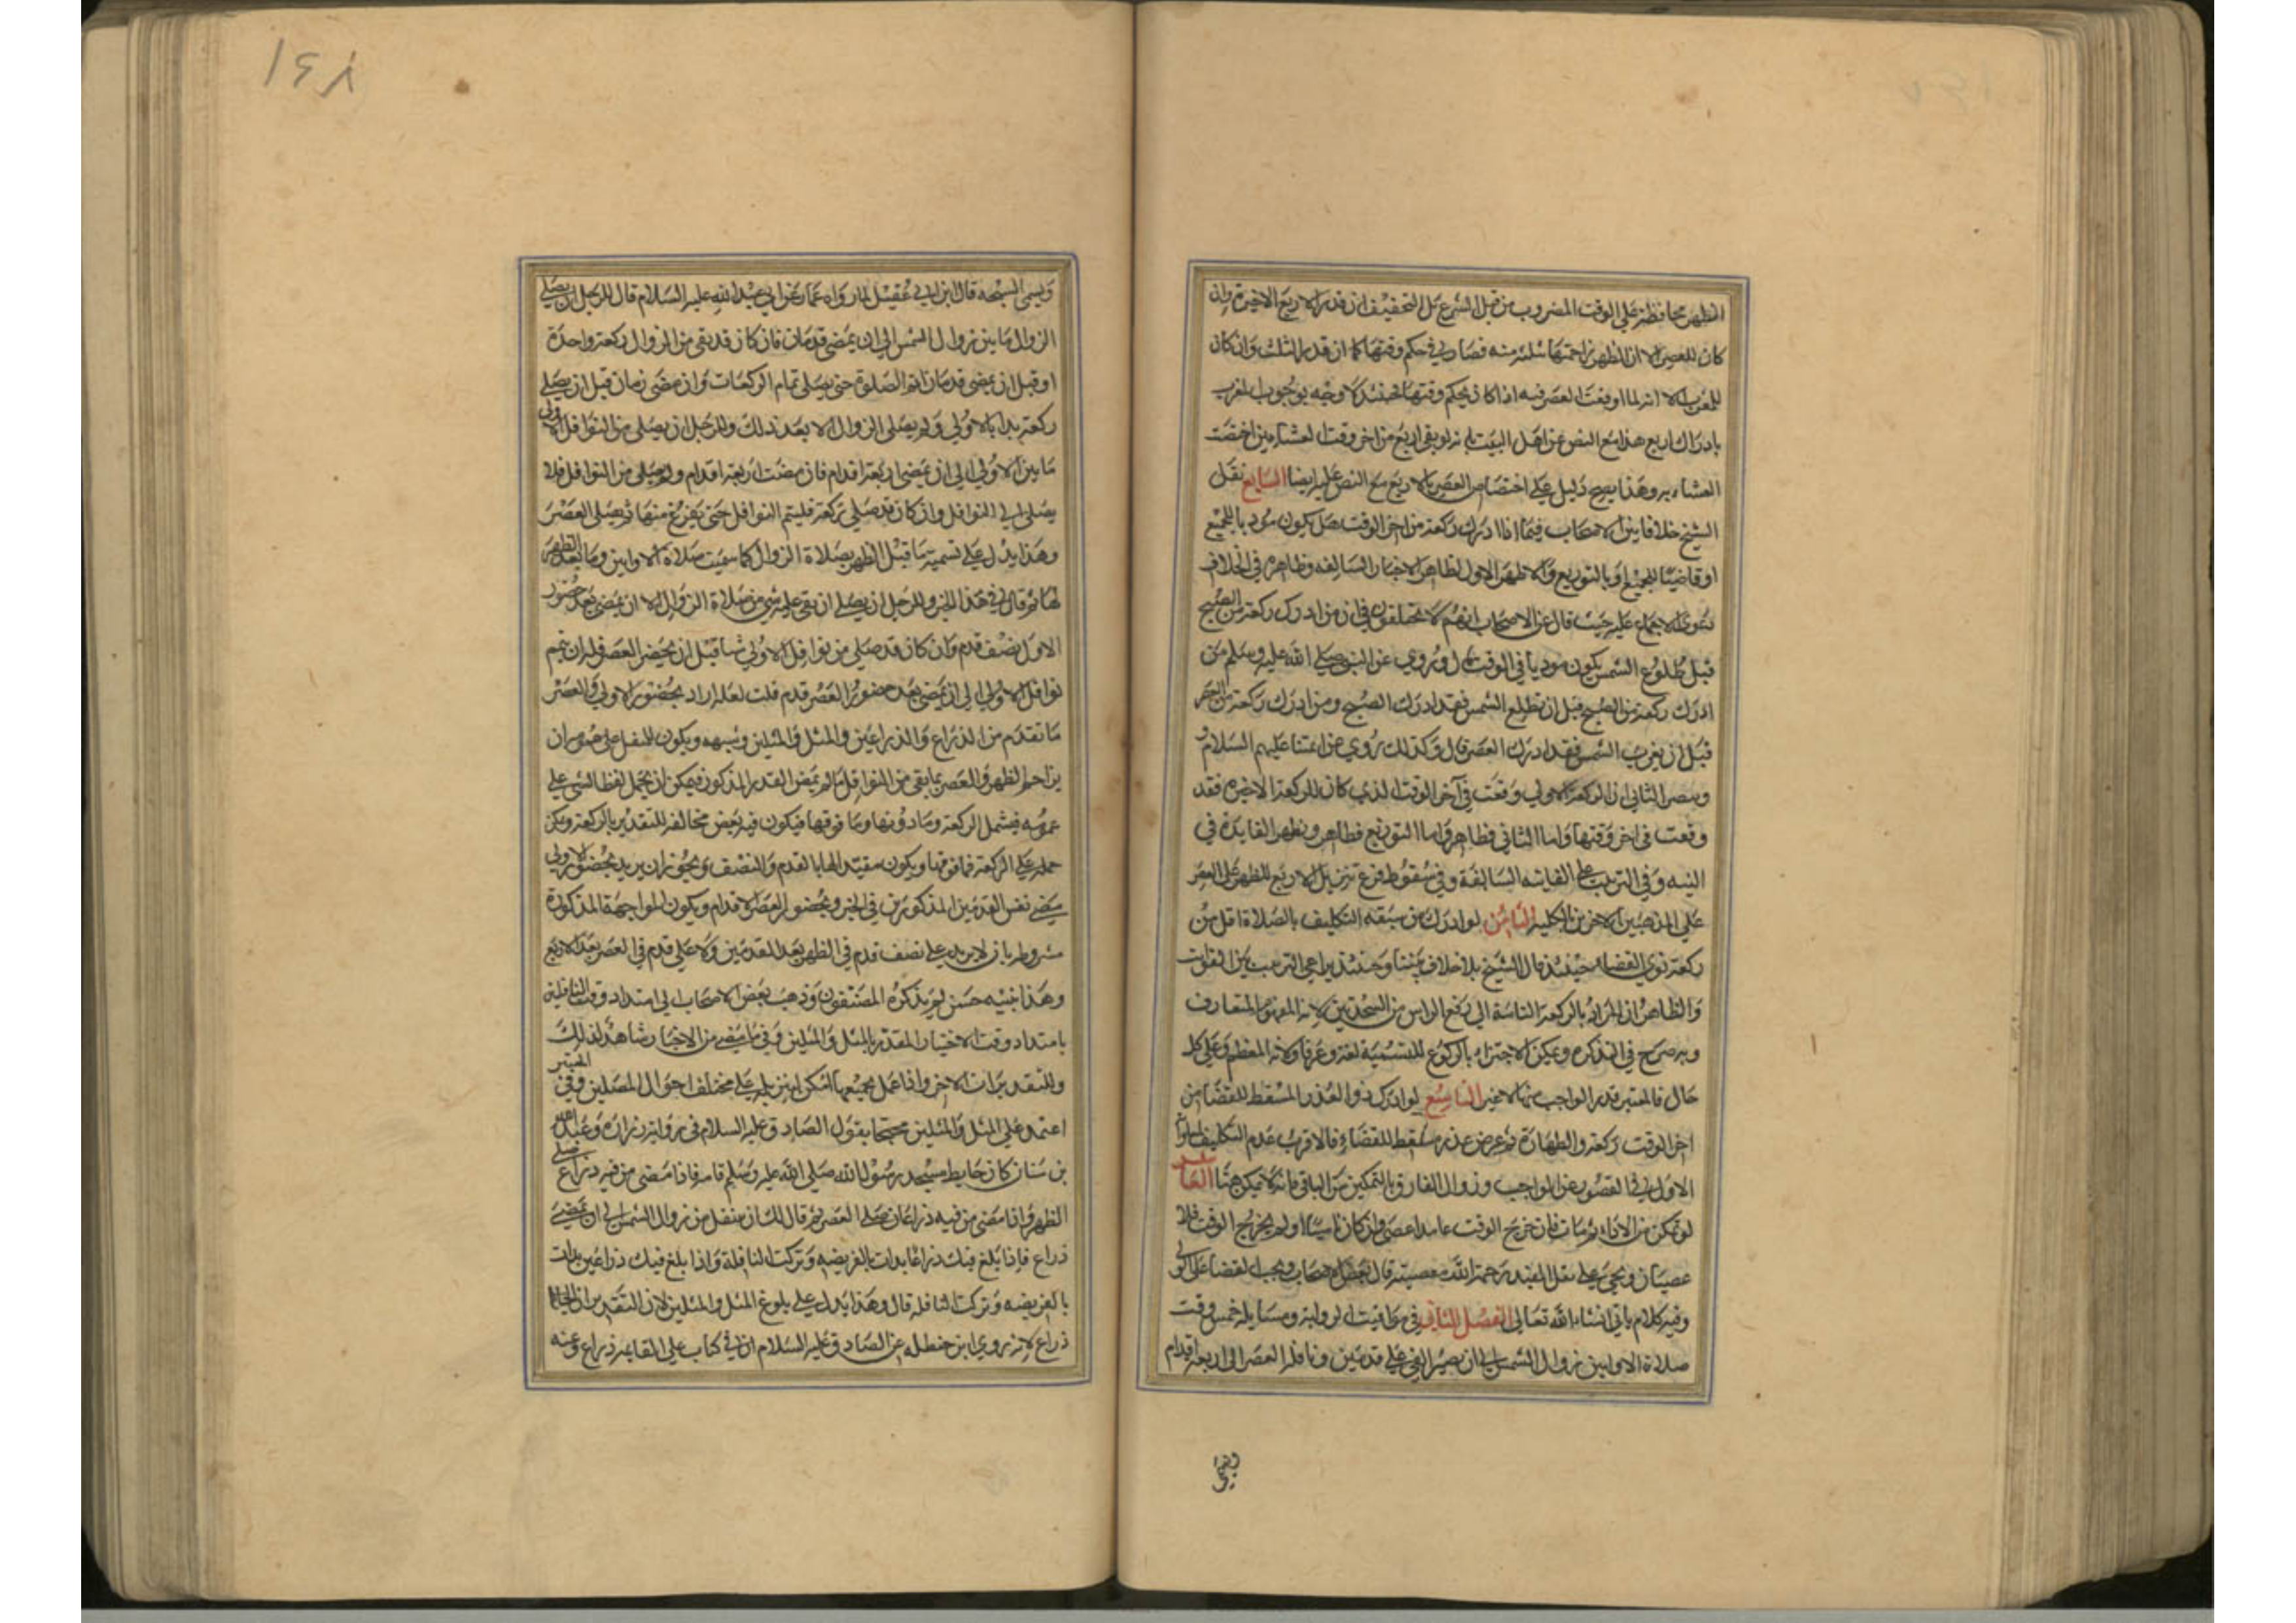 الظهر محافظة على الوقت المضروب من قبل الشرع بل التحقيق ان قدر الاربع الاخيرة وان
كان للعصر الا ان الظهر زاحمتها بثلثه منه فصار في حكم وقتها كما ان قدر الثلث وان كان
للمغرب الا انه لما اوقعت العصر فيه اذا كان بحكم وقتها فحينئذ لا وجه لوجوب المغرب
بادراك اربع هذا مع النص عن اهل البيت بانه لو بقي اربع من اخر وقت العشاءين اختصت
العشاء به وهذا يرجح دليل على اختصاص العصر بالاربع مع النص عليه ايضا السابع نقل
الشيخ خلافا بين الاصحاب فيما اذا ادرك ركعة من اخر الوقت هل يكون مؤديا للجميع
او قاضيا للجميع او بالتوزيع والاظهر الاول لظاهر الاخبار السالفه وظاهره في الخلاف
دعوى الاجماع عليه حيث قال عن الاصحاب انهم لا يختلفون في ان من ادرك ركعة من الصبح
قبل طلوع الشمس يكون مؤديا في الوقت قال وروي عن النبي صلى الله عليه وسلم من
ادرك ركعة من الصبح قبل ان تطلع الشمس فقد ادرك الصبح ومن ادرك ركعة من العصر
قبل ان يغرب الشمس فقد ادرك العصر قال وكذلك روي عن ائمتنا عليهم السلام و
ونصر الثاني ان الركعة الاولى وقعت في آخر الوقت الذي كان للركعة الاخيرة فقد
وقعت في اخر وقتها واما الثاني فظاهر واما التوزيع فظاهر ونظهر الفايدة في
النيه وفي الترتيب على الفايته السالفة وفي سقوط فرع تنزيل الاربع للظهر على العصر
على المذهبين الاخرين بالكلية الثامن لو ادرك من سبقه التكليف بالصلاة اقل من
ركعة نوى القضاء حينئذ قال الشيخ بلا خلاف بيننا وحينئذ يراعي الترتيب بين الفوايت
والظاهر ان المراد بالركعة التامة الى رفع الراس من السجدتين لانه المفهوم المتعارف
وبه صرح في التذكره ويمكن الاجتزاء بالركوع للتسمية لغة وعرفا ولانه المعظم وعلى كل
حال فالمعتبر قدر الواجب منها لا غير التاسع لو ادرك ذو العذر المسقط للقضاء من
اخر الوقت ركعة والطهارة ثم عرض عذر مسقط للقضاء فالاقرب عدم التكليف بها
الاول في القصور عن الواجب وزوال الفارق بالتمكين من الباقي فانه لا يمكن هنا العاشر
لو تمكن من الاداء ثم مات فان خرج الوقت عامدا عصى وان كان ناسيا او لم يخرج الوقت فلا
عصيان ويجيء على نقل المفيد رحمة الله معصيته قال بعض الاصحاب ويجب القضاء على الولي
وفيه كلام ياتي انشاء الله تعالى الفصل الثاني في مواقيت الرواتب ومسايله خمس وقت
صلاة الاوابين زوال الشمس الى ان يصير الفي على قدمين ونافلة العصر الى اربعة اقدام
ويسمى
١٤٨
ويسمى السبحه قال ابن ابي عقيل لما رواه عمار عن ابي عبد الله عليه السلام قال للرجل ان يصلي
الزوال ما بين زوال الشمس الى ان يمضي قدمان فان كان قد بقي من الزوال ركعة واحدة
او قبل ان يمضي قدمان اتم الصلوة حتى يصلي تمام الركعات وان مضى قدمان قبل ان يصلي
ركعة بدا بالاولى ولم يصلي الزوال الا بعد ذلك وللرجل ان يصلي من النوافل الاولى
ما بين الاولى الى ان يمضي اربعة اقدام فان مضت اربعة اقدام ولم يصلي من النوافل فلا
يصلي النوافل وان كان قد صلى ركعة فليتم النوافل حتى يفرغ منها ثم يصلي العصر
وهذا يدل على تسميه ما قبل الظهر بصلاة الزوال كما سميت صلاة الاوابين وما بعد الظهر
لها ثم قال في هذا الخبر وللرجل ان يصلي ان بقي عليه شي من صلاة الزوال الا ان يمضي بعد حضور
الاولى نصف قدم وان كان قد صلى من نوافل الاولى شيا قبل ان يحضر العصر فله ان يتم
نوافل الاولى الى ان يمضي بعد حضور العصر قدم قلت لعله اراد بحضور الاولى والعصر
ما تقدم من الذراع والذراعين والمثل والمثلين وشبهه ويكون للمتنفل على حضور ان
يزاحم الظهر والعصر بما بقي من النوافل ما لم يمض القدر المذكور فيمكن ان يحمل لفظ الشي على
عمومه فيشمل الركعة وما دونها وما فوقها فيكون فيه بعض مخالفه للتقدير بالركعة ويمكن
حمله على الركعة فما فوقها ويكون مقيدا لها بالقدم والنصف ويجوز ان يريد بحضور الاولى
مضي نفس القدمين المذكورين في الخبر وبحضور العصر الاقدام ويكون المواجهة المذكورة
مشروطه بان لا يزيد على نصف قدم في الظهر بعد القدمين ولا على قدم في العصر بعد الاربع
وهذا تنبيه حسن لم يذكره المصنفون وذهب بعض الاصحاب الى امتداد وقت النافلة
بامتداد وقت الاختيار المقدر بالمثل والمثلين وفي ما مضى من الاخبار شاهد لذلك
وللتقديرات الاخر واذا عمل بجميعها امكن تنزيله على مختلف احوال المصلين وفي المعتبر
اعتمد على المثل والمثلين محتجا بقول الصادق عليه السلام في رواية زرارة وعبد الله
بن سنان كان حايط مسجد رسول الله صلى الله عليه وسلم قامة فاذا مضى من فيه ذراع صلى
الظهر واذا مضى من فيه ذراعان صلى العصر ثم قال لك ان تتنفل من زوال الشمس الى ان يمضي
ذراع فاذا بلغ فيك ذراعا بدات بالفريضه وتركت النافلة واذا بلغ فيك ذراعين بدات
بالفريضه وتركت النافله قال وهذا يدل على بلوغ المثل والمثلين لان التقدير ان الحايط
ذراع لانه روي ابن حنظله عن الصادق عليه السلام ان في كتاب علي القامة ذراع وعنه